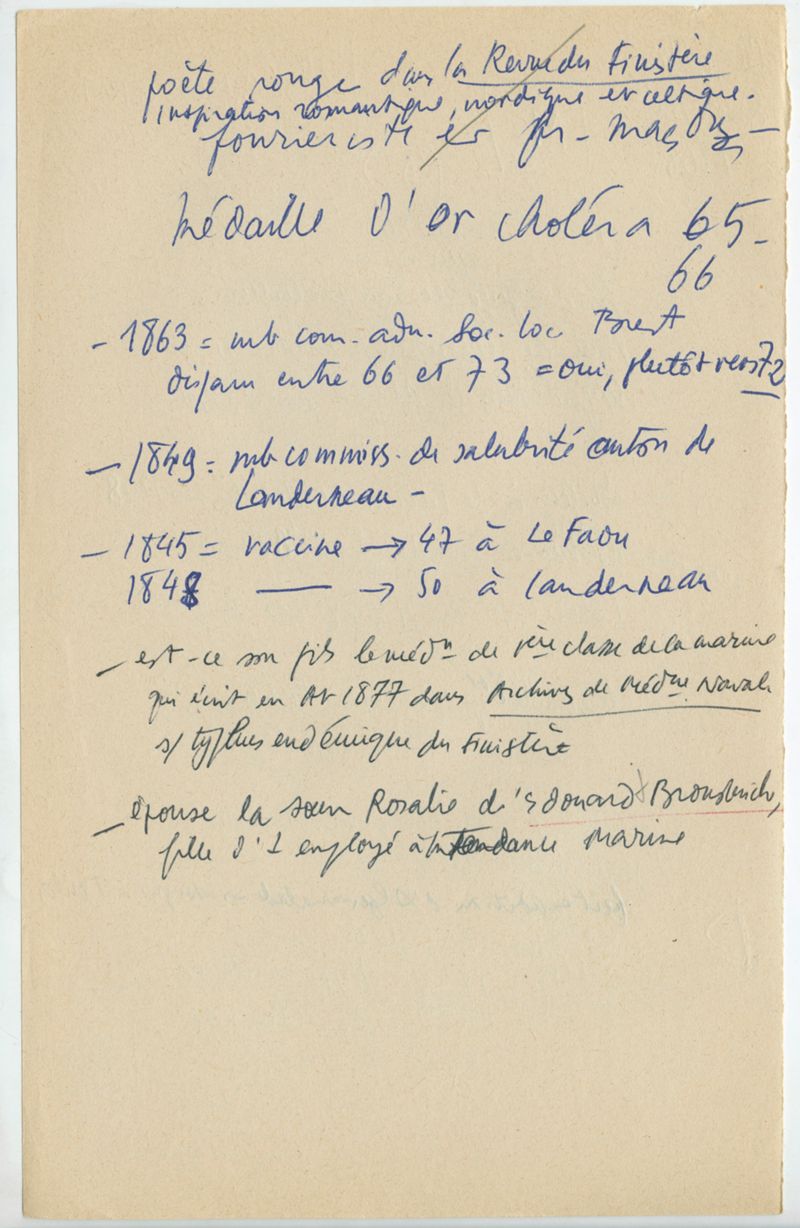 poète rouge dans la Revue du Finistère
inspiration romantique, nordique et celtique.
fouriériste et fr. maçon —
Médaille d'or choléra 65-
66
- 1863 = mb com. adm. Soc. loc Brest
disparu entre 66 et 73 = oui, plutôt vers 72
- 1849 = mb commiss. de salubrité canton de
Landerneau -
- 1845 = vaccine → 47 à Le Faou
1848 —— → 50 à Landerneau
- est-ce son fils le médn de 1ère classe de la marine
qui écrit en At 1877 dans Archives de Médne Navale
s/ typhus endémique du Finistère
- épouse la sœur Rosalie d'Edouard
fille d'1 employé à Intendance Marine